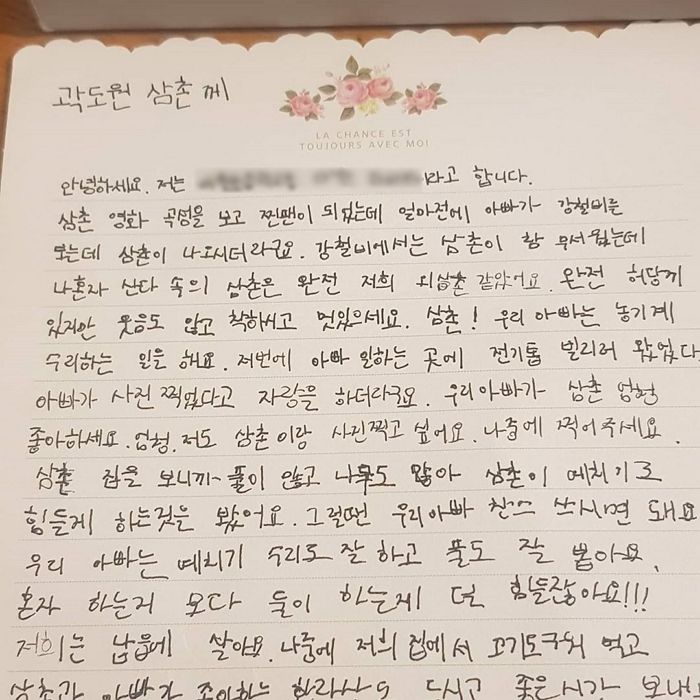 곽도원 삼촌께
LA CHANCE EST
TOUJOURS AVEC MOI
안녕하세요. 저는 라고 합니다.
삼촌 영화 곡성을 보고 찐팬이 되었는데 얼마전에 아빠가 강철비를
보는데 삼촌이 나오시더라구요. 강철비에서는 삼촌이 참 무서웠는데
나혼자 산다 속의 삼촌은 완전 저희 외삼촌 같았어요. 완전 허당끼
있지만 웃음도 많고 착하시고 멋있으세요. 삼촌! 우리 아빠는 농기계
수리하는 일을 해요. 저번에 아빠 일하는 곳에 전기톱 빌리러 왔었다
아빠가 사진 찍었다고 자랑을 하더라구요. 우리아빠가 삼촌 엄청
좋아하세요. 엄청. 저도 삼촌이랑 사진찍고 싶어요. 나중에 찍어주세요.
삼촌 집을 보니까~ 풀이 많고 나무도 많아 삼촌이 예치기로
힘들게 하는것을 봤어요. 그럴땐 우리아빠 찬스 쓰시면 돼요
우리 아빠는 예치기 수리도 잘하고 풀도 잘 뽑아요.
혼자 하는거 보다 둘이 하는게 덜 힘들잖아요!!!
저희는 납읍에 살아요. 나중에 저희 집에서 고기도 구워 먹고
삼촌과 아빠가 좋아하는 한라산도 드시고 좋은시간 보내